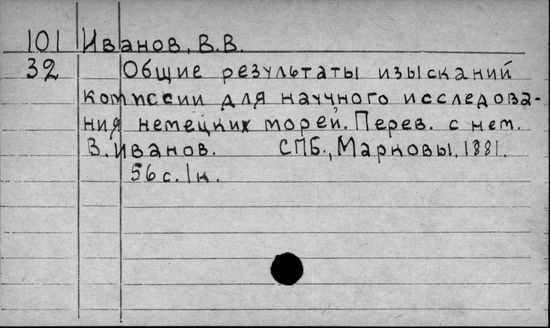 101 Иванов, В.В.
32 Общие результаты изысканий
комиссии для научного исследова-
ния немецких морей. Перев. с нем.
В. Иванов. СПБ., Марковы, 1881.
56 с. 1 к.